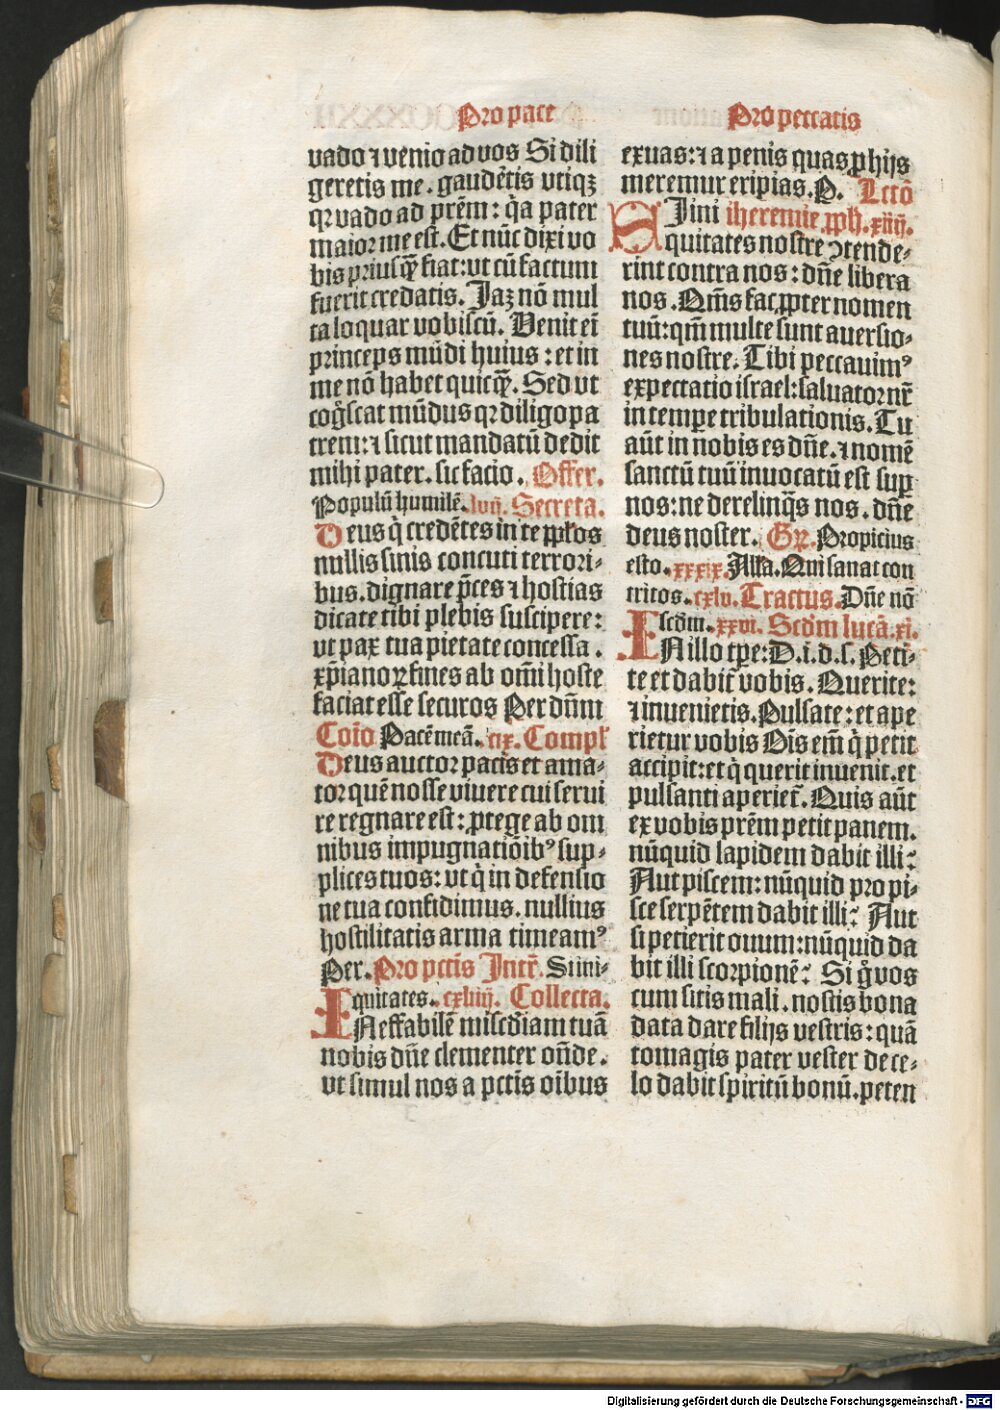 Pro pace
vado ⁊ venio ad vos Si dili
geretis me. gaudētis vtiqꝫ
qꝛ vado ad prēm: q̄a pater
maior me est. Et nūc dixi vo
bis priusqꝫ̄ fiat: vt cū factum
fuerit credatis. Jaꝫ nō mul
ta loquar vobiscū. Venit eī
princeps mūdi huius: et in
me nō habet quicqꝫ̄. Sed vt
cog̊scat mūdus qꝛ diligo pa
trem: ⁊ sicut mandatū dedit
mihi pater. sic facio. Offer.
Populū humilē. lvij. Secreta.
Deus q̇ credētes in te ppl̄os
nullis sinis concuti terrori⸗
bus. dignare p̄ces ⁊ hostias
dicate tibi plebis suscipere:
vt pax tua pietate concessa.
xp̄ianoꝝ fines ab om̄i hoste
faciat esse securos Per dn̄m
Cōio Pacē meā. cix. Compl̄
Deus auctor pacis et ama⸗
tor quē nosse viuere cui serui
re regnare est: ꝓtege ab om
nibus impugnatiōibꝰ sup⸗
plices tuos: vt q̇ in defensio
ne tua confidimus. nullius
hostilitatis arma timeamꝰ
Per. Pro pctīs Intr̄. Si ini⸗
quitates. cxliiij. Collecta.
INeffabilē miscd̄iam tuā
nobis dn̄e clementer on̄de.
vt simul nos a pctīs oībus
Pro peccatis
exuas: ⁊ a penis quas ꝓ hijs
meremur eripias. P. Lctō
SJ ini iheremie ꝓph. xiiij.
quitates nostre ꝯtende⸗
rint contra nos: dn̄e libera
nos. Qm̄s fac ꝓpter nomen
tuū: qm̄ multe sunt auersio⸗
nes nostre. Tibi peccauimꝰ
expectatio israel: saluator nr̄
in tempe tribulationis. Tu
aūt in nobis es dn̄e. ⁊ nomē
sanctū tuū inuocatū est suꝑ
nos: ne derelinq̄s nos. dn̄e
deus noster. Gꝝ. Propicius
esto. xxxix. Alľa. Qui sanat con
tritos. cxlv. Tractus. Dn̄e nō
scd̄m. xxvi. Scd̄m lucā. xi.
IN illo tꝑe: D. i. d. s. Peti⸗
te et dabit̄ vobis. Querite:
⁊ inuenietis. Pulsate: et ape
rietur vobis Ois em̄ q̇ petit
accipit: et q̇ querit inuenit. et
pulsanti aperiet̄. Quis aūt
ex vobis prēm petit panem.
nūquid lapidem dabit illi:
Aut piscem: nūquid pro pi⸗
sce serpētem dabit illi: Aut
si petierit ouum: nūquid da
bit illi scorpionē: Si g̊ vos
cum sitis mali. nostis bona
data dare filijs vestris: quā
tomagis pater vester de ce⸗
lo dabit spiritū bonū. peten
Digitalisierung gefördert durch die Deutsche Forschungsgemeinschaft - DFG